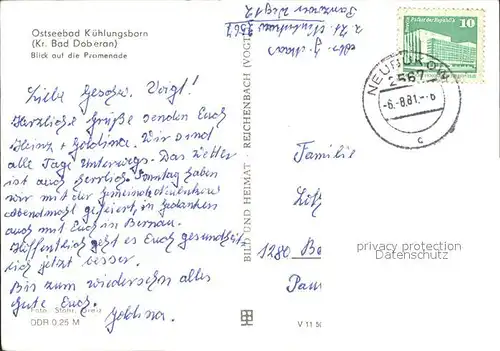 Ostseebad Kühlungsborn
(Kr. Bad Doberan)
Blick auf die Promenade
Liebe Geschw. Voigt!
Herzliche Grüße senden Euch
Heinz + Goldina. Wir sind
alle Tage unterwegs. Das Wetter
ist auch herrlich. Sonntag haben
wir mit der Gemeinde
Abendmahl gefeiert, in Gedanken
auch mit Euch in Bernau.
Hoffentlich geht es Euch gesundheit-
lich jetzt besser.
Bis zum wiedersehn alles
Gute Euch.
Goldina.
Foto: Stöhr, Greiz
DDR 0,25 M
BILD UND HEIMAT · REICHENBACH (VOGT
V 11 50
2567
Palast der Republik
10
NEUBUKOW
2567
-6.-8.81.--6
c
Familie
1280 Be
privacy protection
Datenschutz